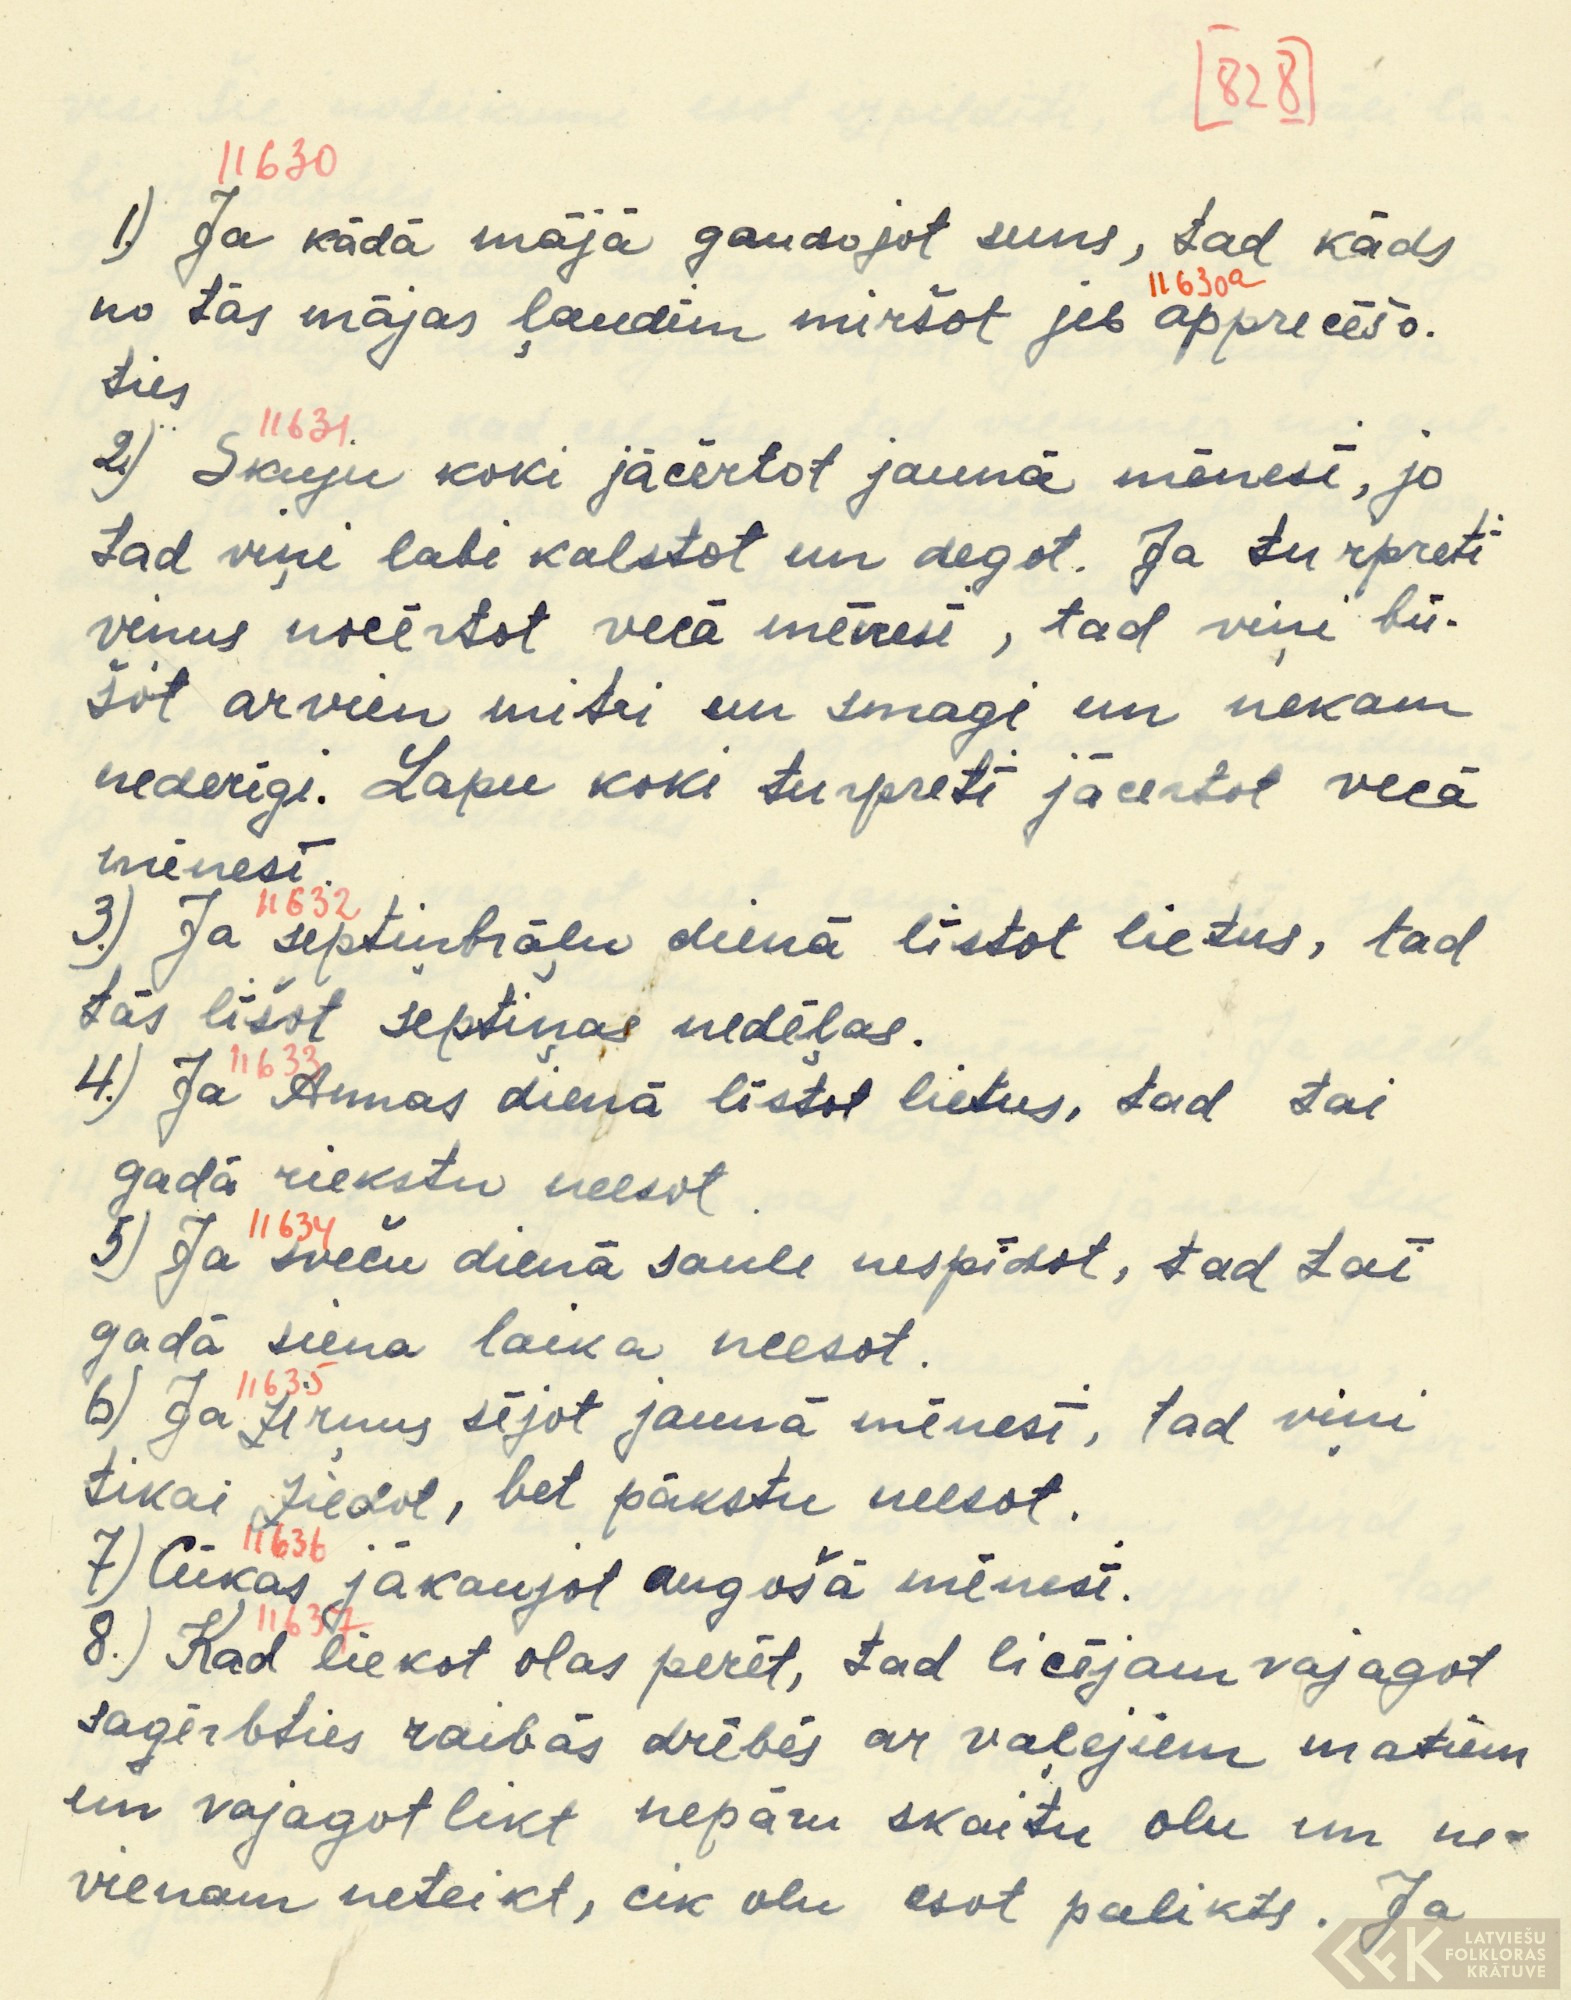 [828]
11630
1.) Ja kādā mājā gaudojot suns, tad kāds
11630a
no tās mājas ļaudīm miršot jeb apprecēšo-
ties
11631
2.) Skuju koki jācērtot jaunā mēnesī, jo
tad viņi labi kalstot un degot. Ja turpretī
viņus nocērtot vecā mēnesī, tad viņi bū-
šot arvien mitri un smagi un nekam
nederīgi. Lapu koki turpretī jācērtot vecā
mēnesī.
11632
3.) Ja septiņbrāļu dienā līstot lietus, tad
tās līšot septiņas nedēļas.
11633
4.) Ja Annas dienā līstot lietus, tad tai
gadā riekstu neesot.
11634
5) Ja sveču dienā saule nespīdot, tad taī
gadā siena laika neesot.
11635
6) Ja zirņus sējot jaunā mēnesī, tad viņi
tikai ziedot, bet pākstu neesot.
11636
7) Cūkas jākaujot augošā mēnesī.
11637
8.) Kad liekot olas perēt, tad licējam vajagot
saģērbties raibās drēbēs ar vaļējiem matiem
un vajagot likt nepāru skaitu olu un ne-
vienam neteikt, cik olu esot palikts. Ja
LATVIEŠU
FOLKLORAS
KRĀTUVE